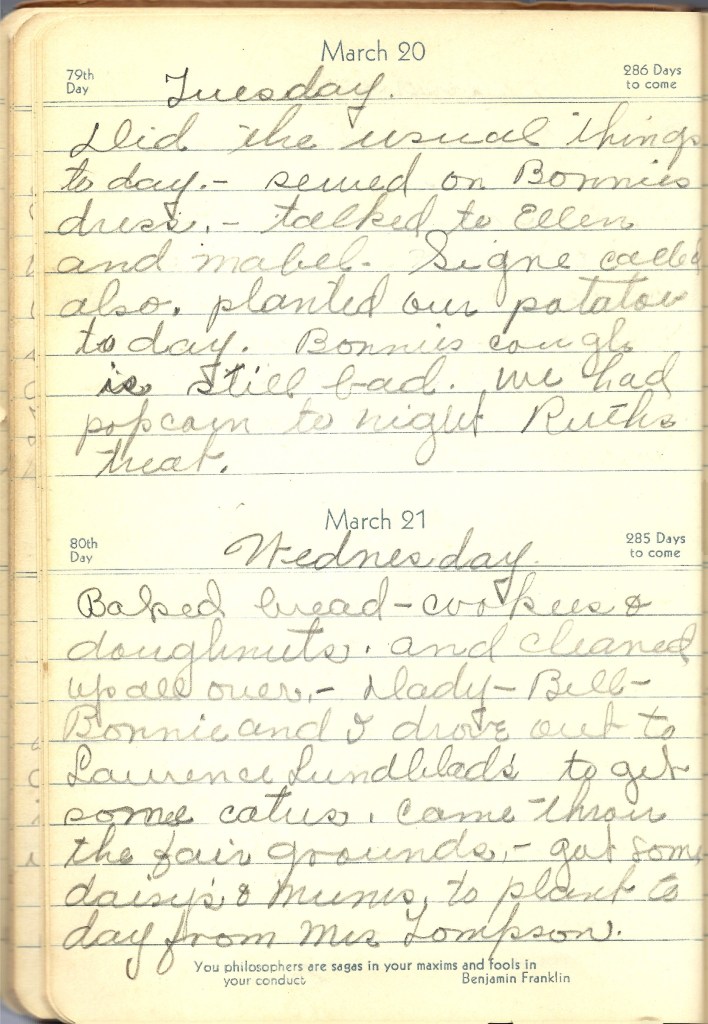 March 20
79th Day
286 Days to come
Tuesday.
Did the usual things
to day. - sewed on Bonnies
dress. - talked to Ellen
and mabel. Signe called
also. planted our potatoes
to day. Bonnies cough
is still bad. We had
popcorn to night Ruths
treat.
March 21
80th Day
285 Days to come
Wednesday
Baked bread - cookies &
doughnuts. and cleaned
up all over. - Dady - Bill -
Bonnie and I drove out to
Laurence Lundblad's to get
some catus. came throu
the fair grounds. - got some
daisy's & mums, to plant to
day from Mrs Tompson.
You philosophers are sagas in your maxims and fools in
your conduct
Benjamin Franklin